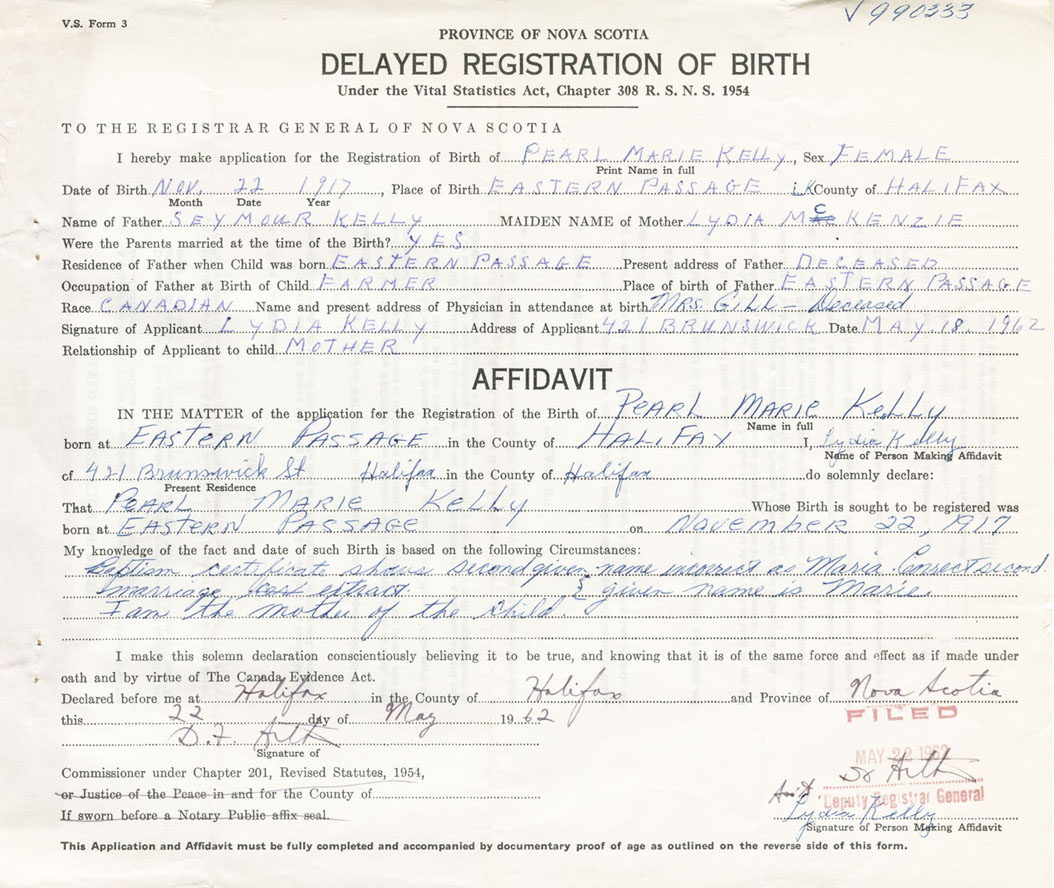 V.S. Form 3
√ 990333
PROVINCE OF NOVA SCOTIA
DELAYED REGISTRATION OF BIRTH
Under the Vital Statistics Act, Chapter 308 R. S. N. S. 1954
TO THE REGISTRAR GENERAL OF NOVA SCOTIA
I hereby make application for the Registration of Birth of PEARL MARIE KELLY, Sex FEMALE
Print Name in full
Date of Birth NOV. 22 1917, Place of Birth EASTERN PASSAGE County of HALIFAX
Month Date Year
Name of Father SEYMOUR KELLY MAIDEN NAME of Mother LYDIA McKENZIE
Were the Parents married at the time of the Birth? YES
Residence of Father when Child was born EASTERN PASSAGE Present address of Father DECEASED
Occupation of Father at Birth of Child FARMER Place of birth of Father EASTERN PASSAGE
Race CANADIAN Name and present address of Physician in attendance at birth MRS. GILL - Deceased
Signature of Applicant LYDIA KELLY Address of Applicant 421 BRUNSWICK Date MAY. 18. 1962
Relationship of Applicant to child MOTHER
AFFIDAVIT
IN THE MATTER of the application for the Registration of the Birth of PEARL MARIE KELLY
Name in full
born at EASTERN PASSAGE in the County of HALIFAX I, Lydia Kelly
Name of Person Making Affidavit
of 421 Brunswick St Halifax in the County of Halifax do solemnly declare:
Present Residence
That PEARL MARIE KELLY Whose Birth is sought to be registered was
born at EASTERN PASSAGE on NOVEMBER 22, 1917
My knowledge of the fact and date of such Birth is based on the following Circumstances:
Baptism certificate shows second given name incorrect as Maria. Correct second
marriage extract. & given name is Marie.
I am the mother of the child.
I make this solemn declaration conscientiously believing it to be true, and knowing that it is of the same force and effect as if made under
oath and by virtue of The Canada Evidence Act.
Declared before me at Halifax in the County of Halifax and Province of Nova Scotia
this 22 day of May 1962
FILED
D.F.
Signature of
MAY 22 1962
Commissioner under Chapter 201, Revised Statutes, 1954,
or Justice of the Peace in and for the County of
Asst. Deputy Registrar General
If sworn before a Notary Public affix seal.
Lydia Kelly
Signature of Person Making Affidavit
This Application and Affidavit must be fully completed and accompanied by documentary proof of age as outlined on the reverse side of this form.